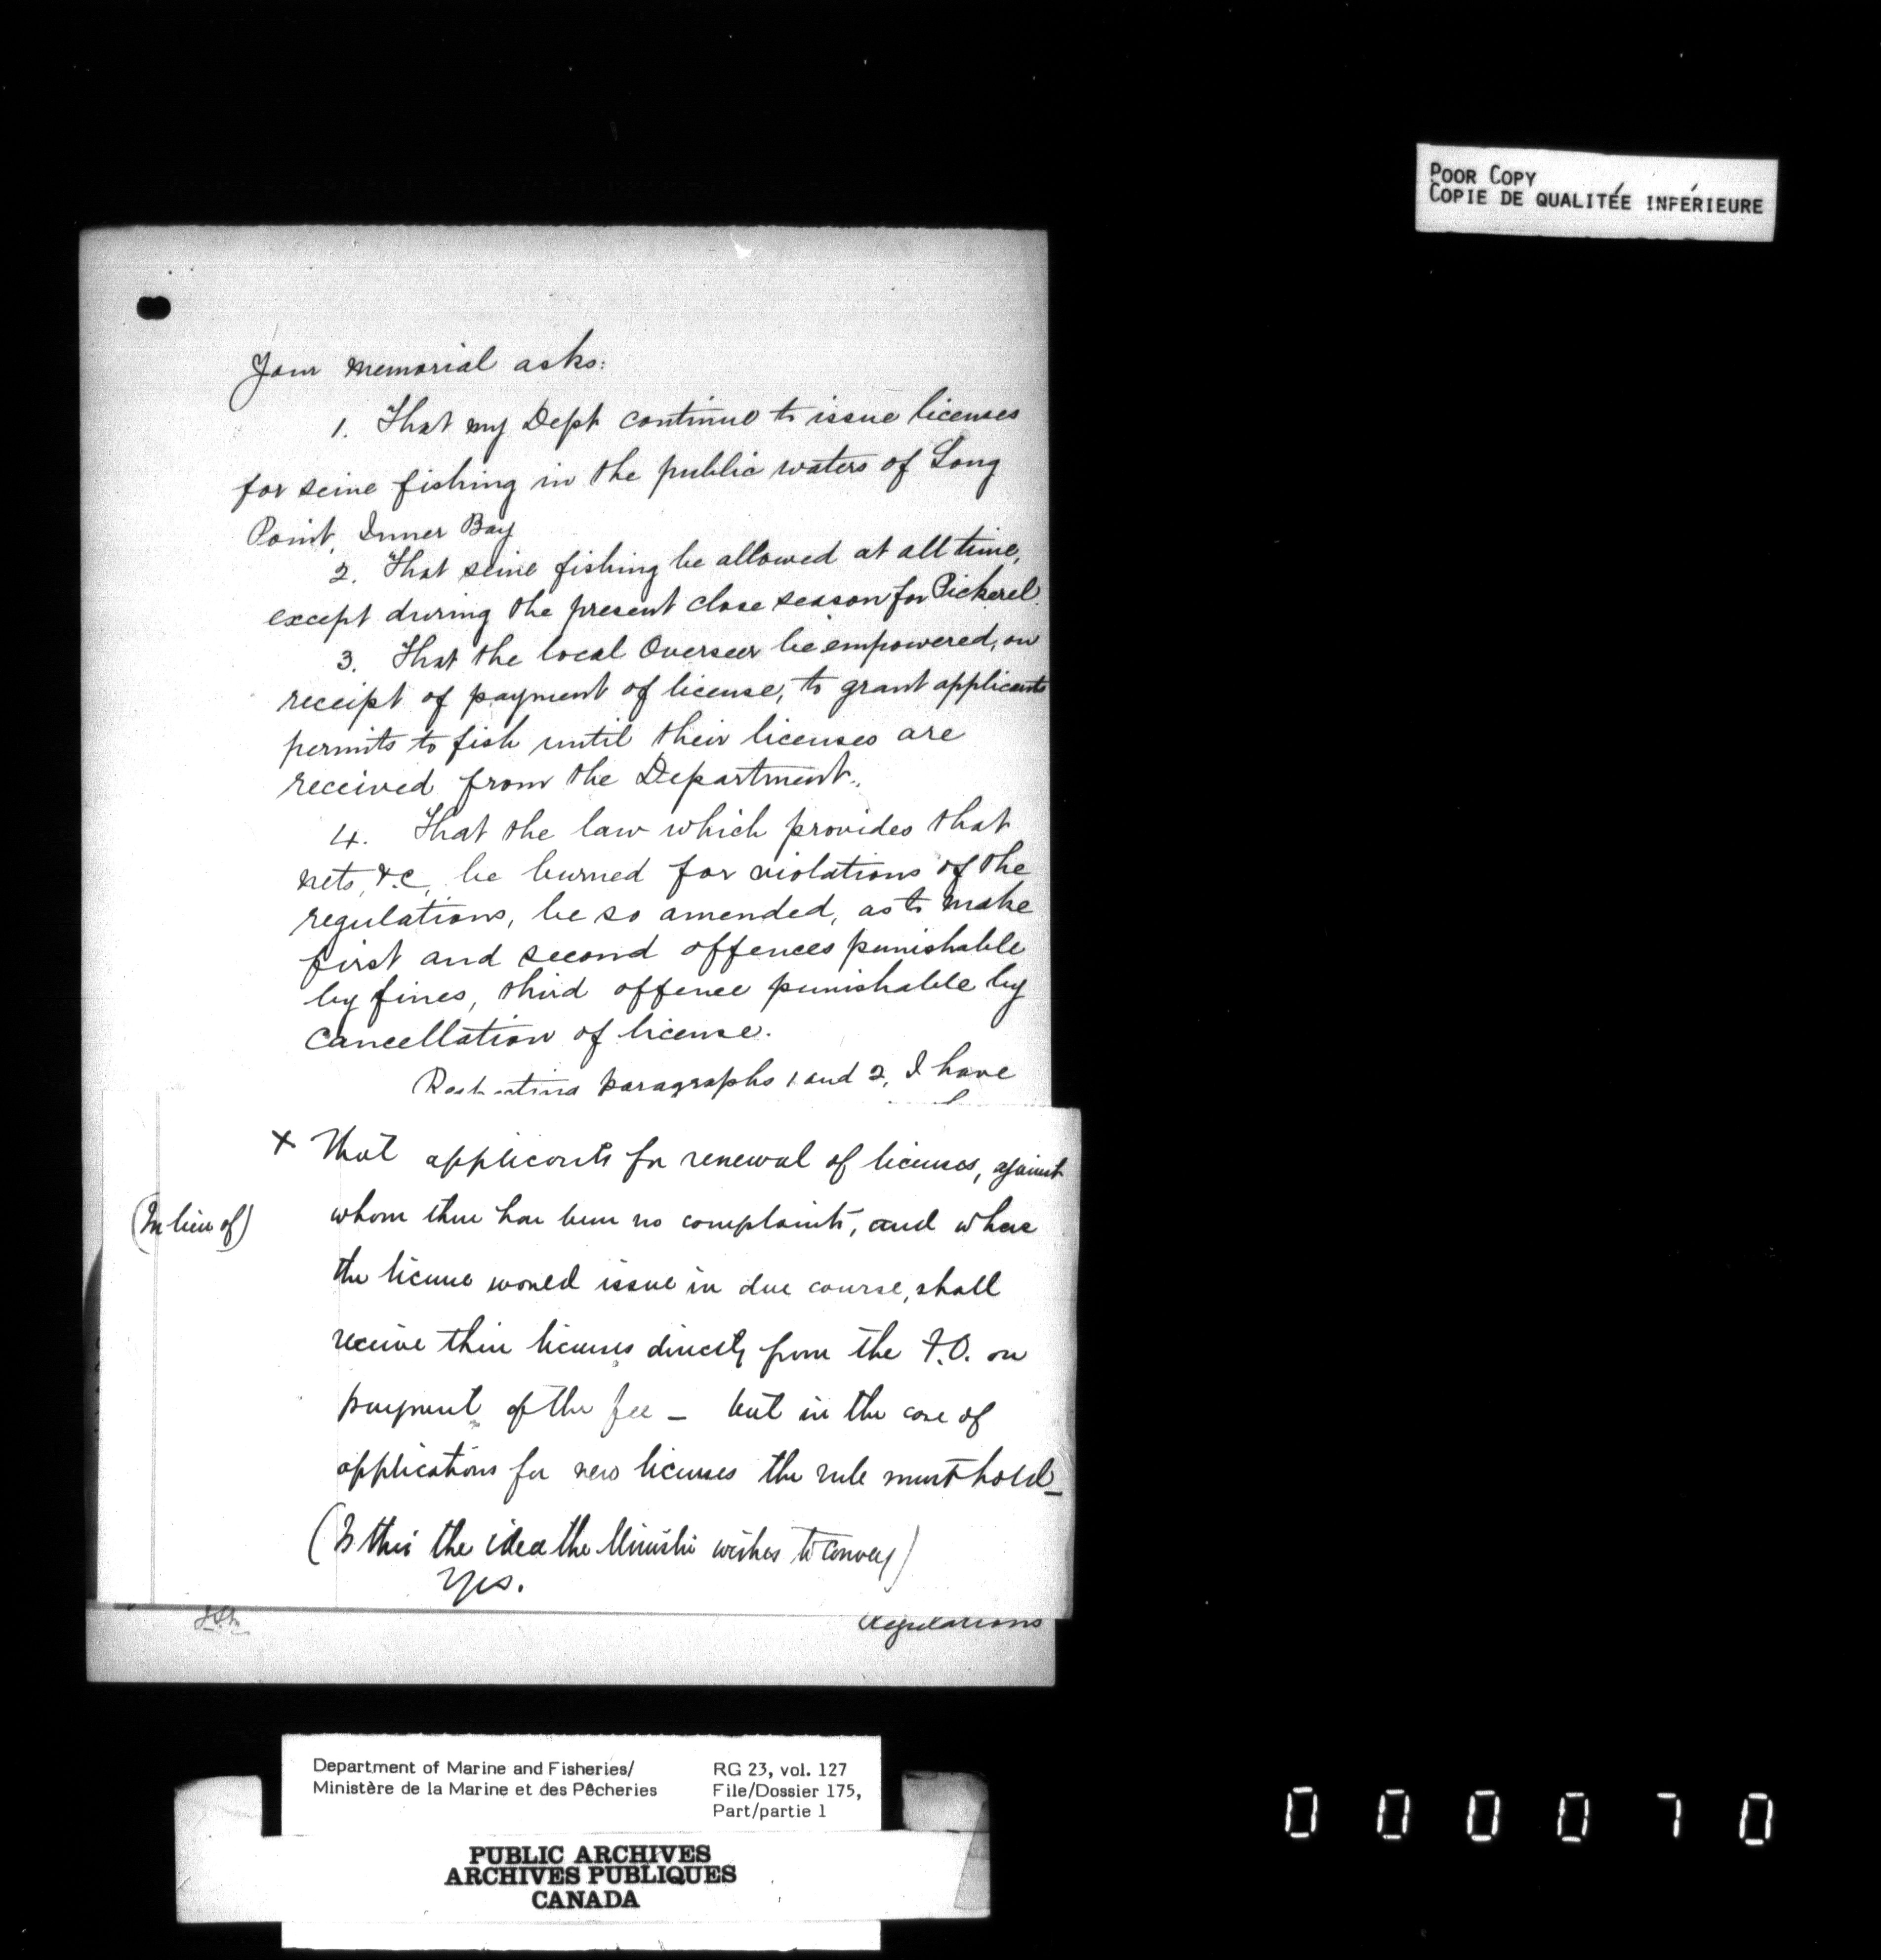 POOR COPY
COPIE DE QUALITÉE INFÉRIEURE
Your memorial asks:
1. That my Dept continue to issue licenses
for seine fishing in the public waters of Long
Point, Inner Bay
2. That seine fishing be allowed at all time,
except during the present close season for Pickerel.
3. That the local Overseer be empowered, on
receipt of payment of license, to grant applicants
permits to fish until their licenses are
received from the Department.
4. That the law which provides that
nets, &c, be burned for violations of the
regulations, be so amended, as to make
first and second offences punishable
by fines, third offence punishable by
cancellation of license.
Respecting paragraphs 1 and 2, I have
x That applicants for renewal of licenses, against
(In lieu of)
whom there has been no complaints, and where
the license would issue in due course, shall
receive their licenses directly from the F.O. on
payment of the fee _ but in the case of
applications for new licenses the rule must hold_
(Is this the idea the Minister wishes to convey)
Yes.
Regulations
Department of Marine and Fisheries/
Ministère de la Marine et des Pêcheries
RG 23, vol. 127
File/Dossier 175,
Part/partie 1
PUBLIC ARCHIVES
ARCHIVES PUBLIQUES
CANADA
000070